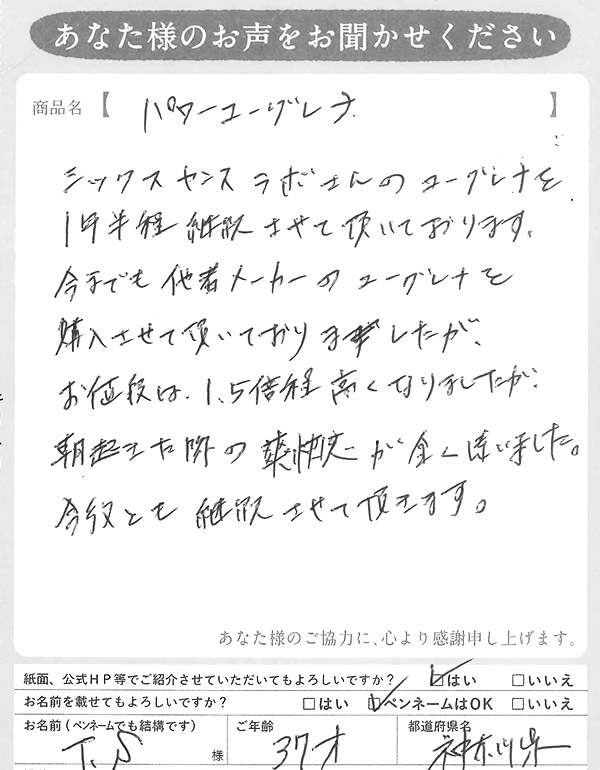 あなた様のお声をお聞かせください
商品名【 パワーユーグレナ 】
シックスセンスラボさんのユーグレナを
1年半程継続させて頂いております。
今までも他者メーカーのユーグレナを
購入させて頂いておりましたが、
お値段は、1.5倍程高くなりましたが、
朝起きた際の爽快感が全く違いました。
今後とも継続させて頂きます。
あなた様のご協力に、心より感謝申し上げます。
紙面、公式HP等でご紹介させていただいてもよろしいですか? ☑はい □いいえ
お名前を載せてもよろしいですか? □はい ☑ペンネームはOK □いいえ
お名前(ペンネームでも結構です) ご年齢 都道府県名
T.S 様 37才 神奈川県